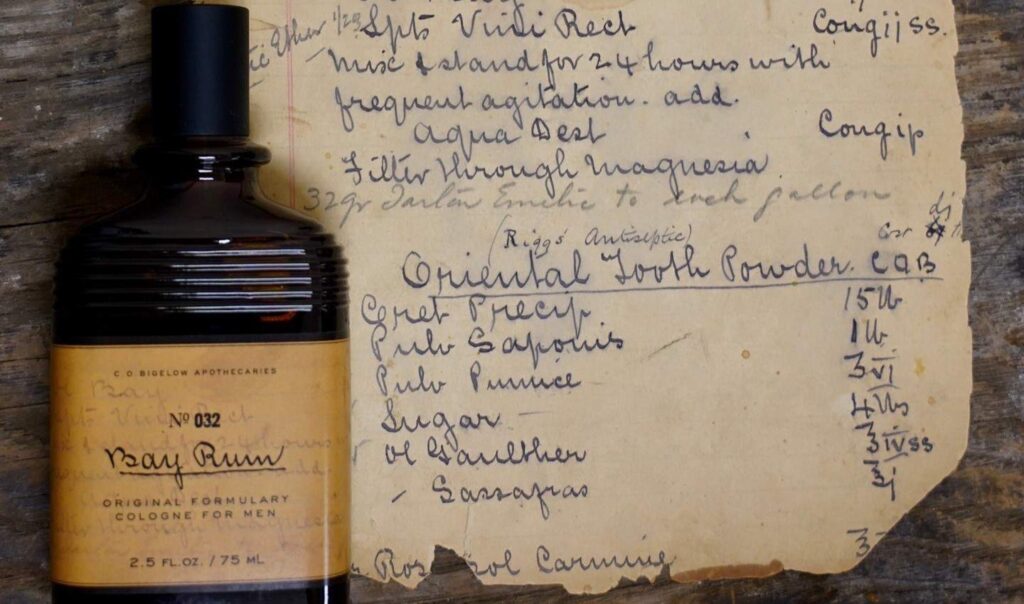 Spts Vini Rect Congijss.
Mix & stand for 24 hours with
frequent agitation. add.
Aqua Dest Congip
Filter through Magnesia
32gr Tartar Emetic to each gallon
(Riggs' Antiseptic)
Oriental Tooth Powder. COB
Cret Precip 15 lb
Pulv Saponis 1 lb
Pulv Pumice ℥vj
Sugar 4 lbs
Ol Gaulther ℥ivss
" Sassafras ℥j
Carmine
C. O. BIGELOW APOTHECARIES
No 032
Bay Rum
ORIGINAL FORMULARY
COLOGNE FOR MEN
2.5 FL.OZ. / 75 ML